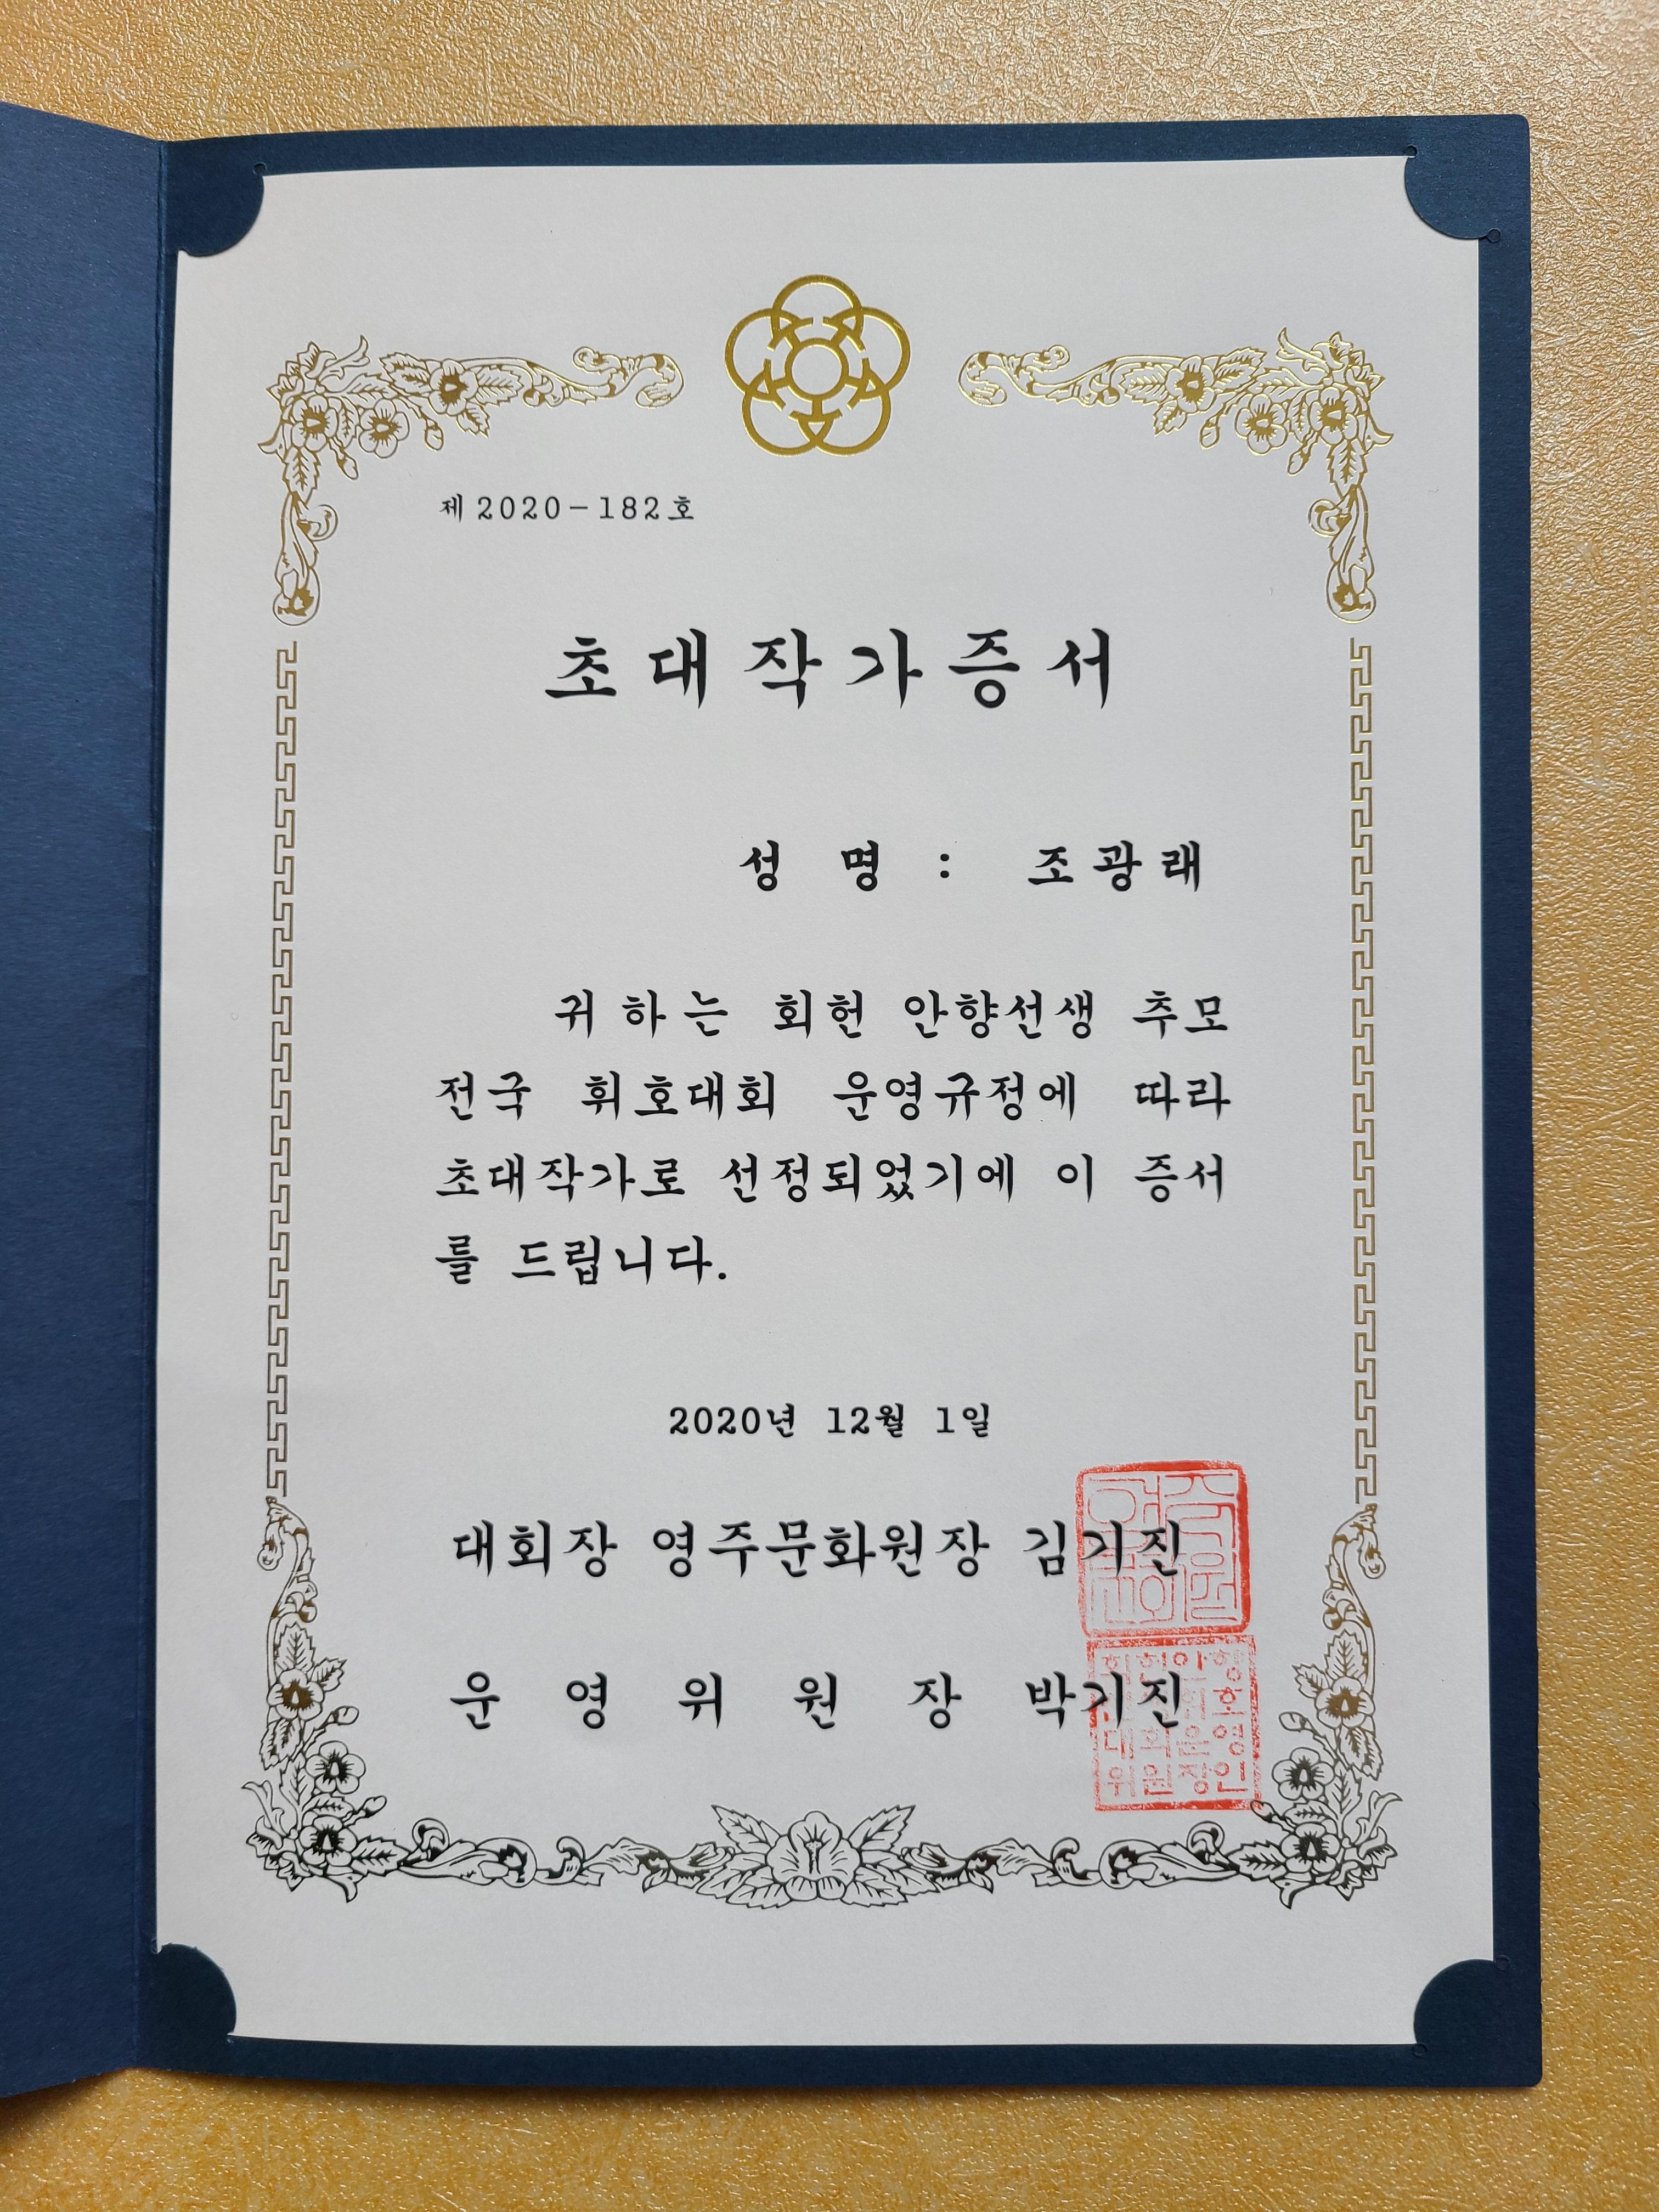 제 2020-182호
초대작가증서
성 명 : 조광래
귀하는 회헌 안향선생 추모
전국 휘호대회 운영규정에 따라
초대작가로 선정되었기에 이 증서
를 드립니다.
2020년 12월 1일
대회장 영주문화원장 김기진
운영위원장 박기진